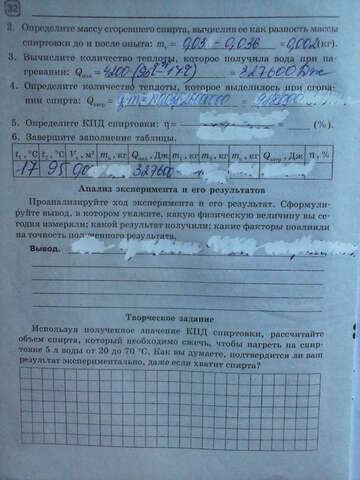 32
2. Определите массу сгоревшего спирта, вычислив ее как разность массы
спиртовки до и после опыта: m = 0,03 - 0,036 = 0,002 (кг).
3. Вычислите количество теплоты, которое получила вода при на-
гревании: Qпол = = 327600 Дж
4. Определите количество теплоты, которое выделилось при сгора-
нии спирта: Qзатр =
5. Определите КПД спиртовки: η = (%).
6. Завершите заполнение таблицы.
t₁, °C t₂, °C V, м³ m, кг Qпол, Дж m, кг m, кг m, кг Qзатр, Дж η, %
17 95 327600
Анализ эксперимента и его результатов
Проанализируйте ход эксперимента и его результат. Сформули-
руйте вывод, в котором укажите, какую физическую величину вы се-
годня измеряли; какой результат получили; какие факторы повлияли
на точность полученного результата.
Вывод.
Творческое задание
Используя полученное значение КПД спиртовки, рассчитайте
объем спирта, который необходимо сжечь, чтобы нагреть на спир-
товке 5 л воды от 20 до 70 °C. Как вы думаете, подтвердится ли ваш
результат экспериментально, даже если хватит спирта?